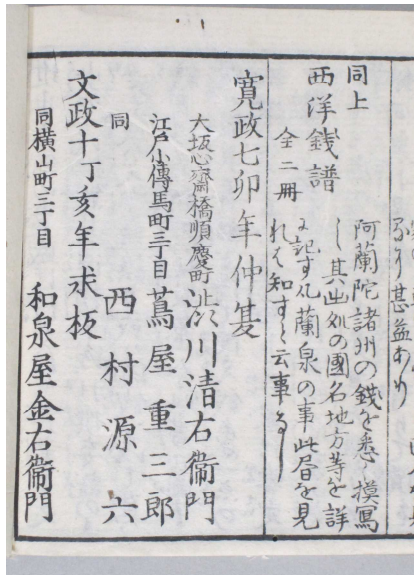 るり甚益あり
同上
西洋銭譜
全二冊
阿蘭陀諸州の銭を悉く摸寫
し其出処の國名地方等を詳
に記す凡蘭泉の事此書を見
れは知すと云事なし
寛政七卯年仲夏
大坂心齋橋順慶町 澁川清右衛門
江戸小傳馬町三丁目 蔦屋重三郎
同 西村源六
文政十丁亥年求板
同横山町三丁目 和泉屋金右衛門